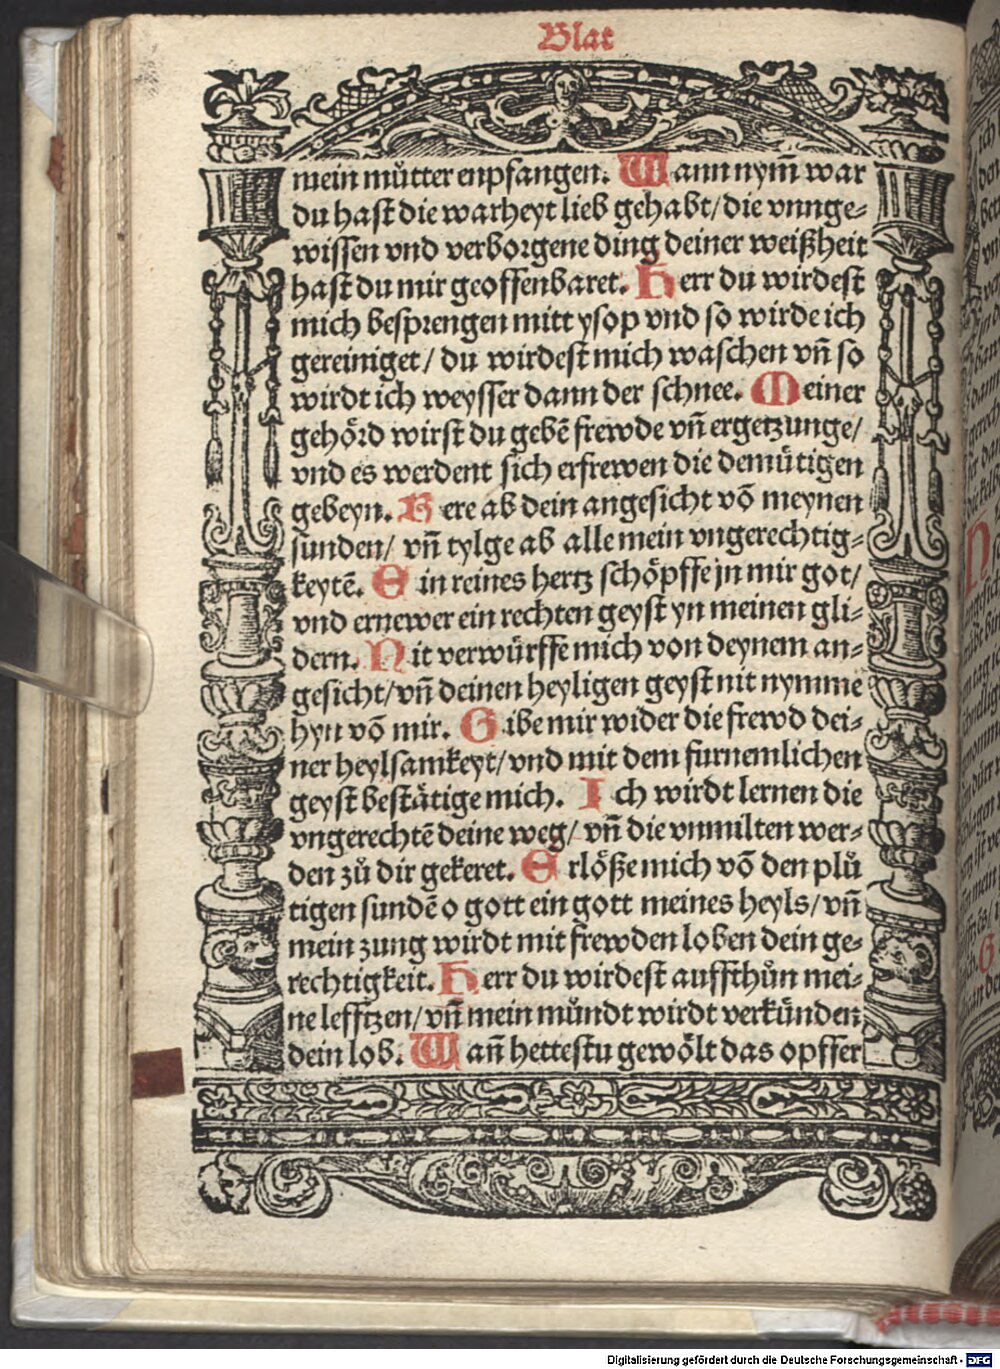 Blat
mein můtter enpfangen. Wann nym̃ war
du hast die warheyt lieb gehabt/ die vnnge⸗
wissen vnd verborgene ding deiner weißheit
hast du mir geoffenbaret. Herr du wirdest
mich besprengen mitt ysop vnd so wirde ich
gereiniget/ du wirdest mich waschen vñ so
wirdt ich weysser dann der schnee. Meiner
gehörd wirst du gebẽ frewde vñ ergetzunge/
vnd es werdent sich erfrewen die demütigen
gebeyn. Kere ab dein angesicht võ meynen
sunden/ vñ tylge ab alle mein vngerechtig⸗
keytẽ. Ein reines hertz schöpffe jn mir got/
vnd ernewer ein rechten geyst yn meinen gli⸗
dern. Nit verwürffe mich von deynem an⸗
gesicht/ vñ deinen heyligen geyst nit nymme
hyn võ mir. Gibe mir wider die frewd dei⸗
ner heylsamkeyt/ vnd mit dem furnemlichen
geyst bestätige mich. Ich wirdt lernen die
vngerechtẽ deine weg/ vñ die vnmilten wer⸗
den zů dir gekeret. Erlöße mich võ den plů
tigen sundẽ o gott ein gott meines heyls/ vñ
mein zung wirdt mit frewden loben dein ge⸗
rechtigkeit. Herr du wirdest auffthůn mei⸗
ne lefftzen/ vñ mein můndt wirdt verkünden
dein lob. Wañ hettestu gewölt das opffer
Digitalisierung gefördert durch die Deutsche Forschungsgemeinschaft - DFG